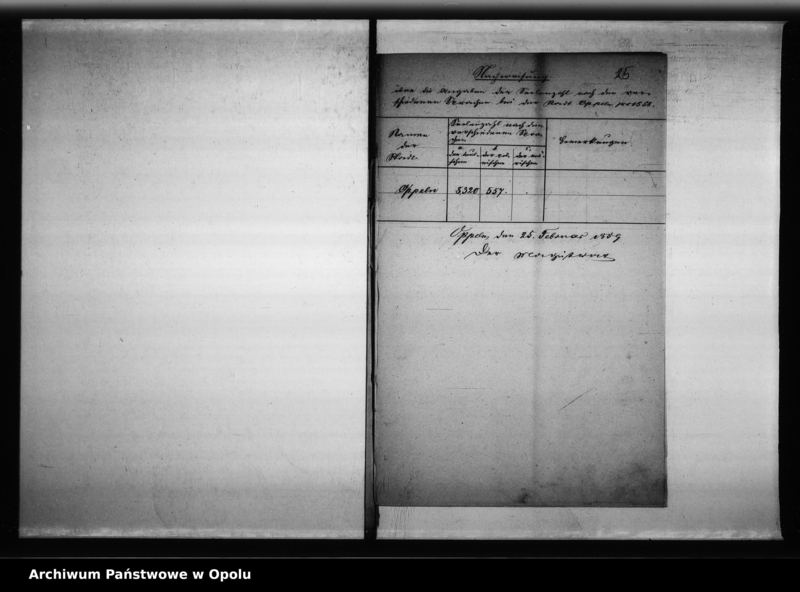 Nachweisung
25
über die Angaben der Seelenzahl nach den ver-
schiedenen Sprachen bei der Stadt Oppeln pro 1858.
Namen
der
Stadt.
Seelenzahl nach den
verschiedenen Spra-
chen
Bemerkungen
a
der deut-
schen
b
der pol-
nischen
c
der mä-
rischen
Oppeln
5,320
557.
Oppeln, den 25. Februar 1859
Der Magistrat
Archiwum Państwowe w Opolu